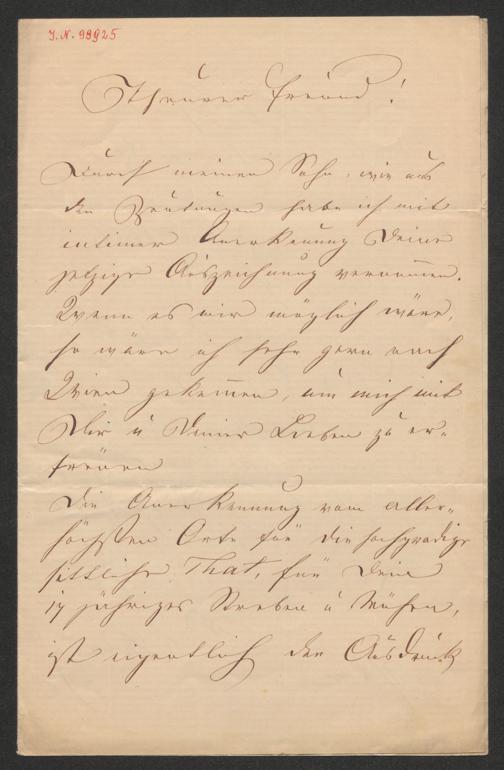 J. N. 98925
Theurer Freund!
Durch meinen Sohn, wie aus
den Zeitungen habe ich mit
intimer Anerkennung Deine
jetzige Auszeichnung vernommen.
Wenn es mir möglich wäre,
so wäre ich sehr gern nach
Wien gekommen, um mich mit
Dir u Deinen Lieben zu er-
freuen
Die Anerkennung vom aller-
höchsten Orte für die hochgradige
sittliche That, für Dein
jähriges Streben u Mühen,
ist eigentlich der Ausdruck